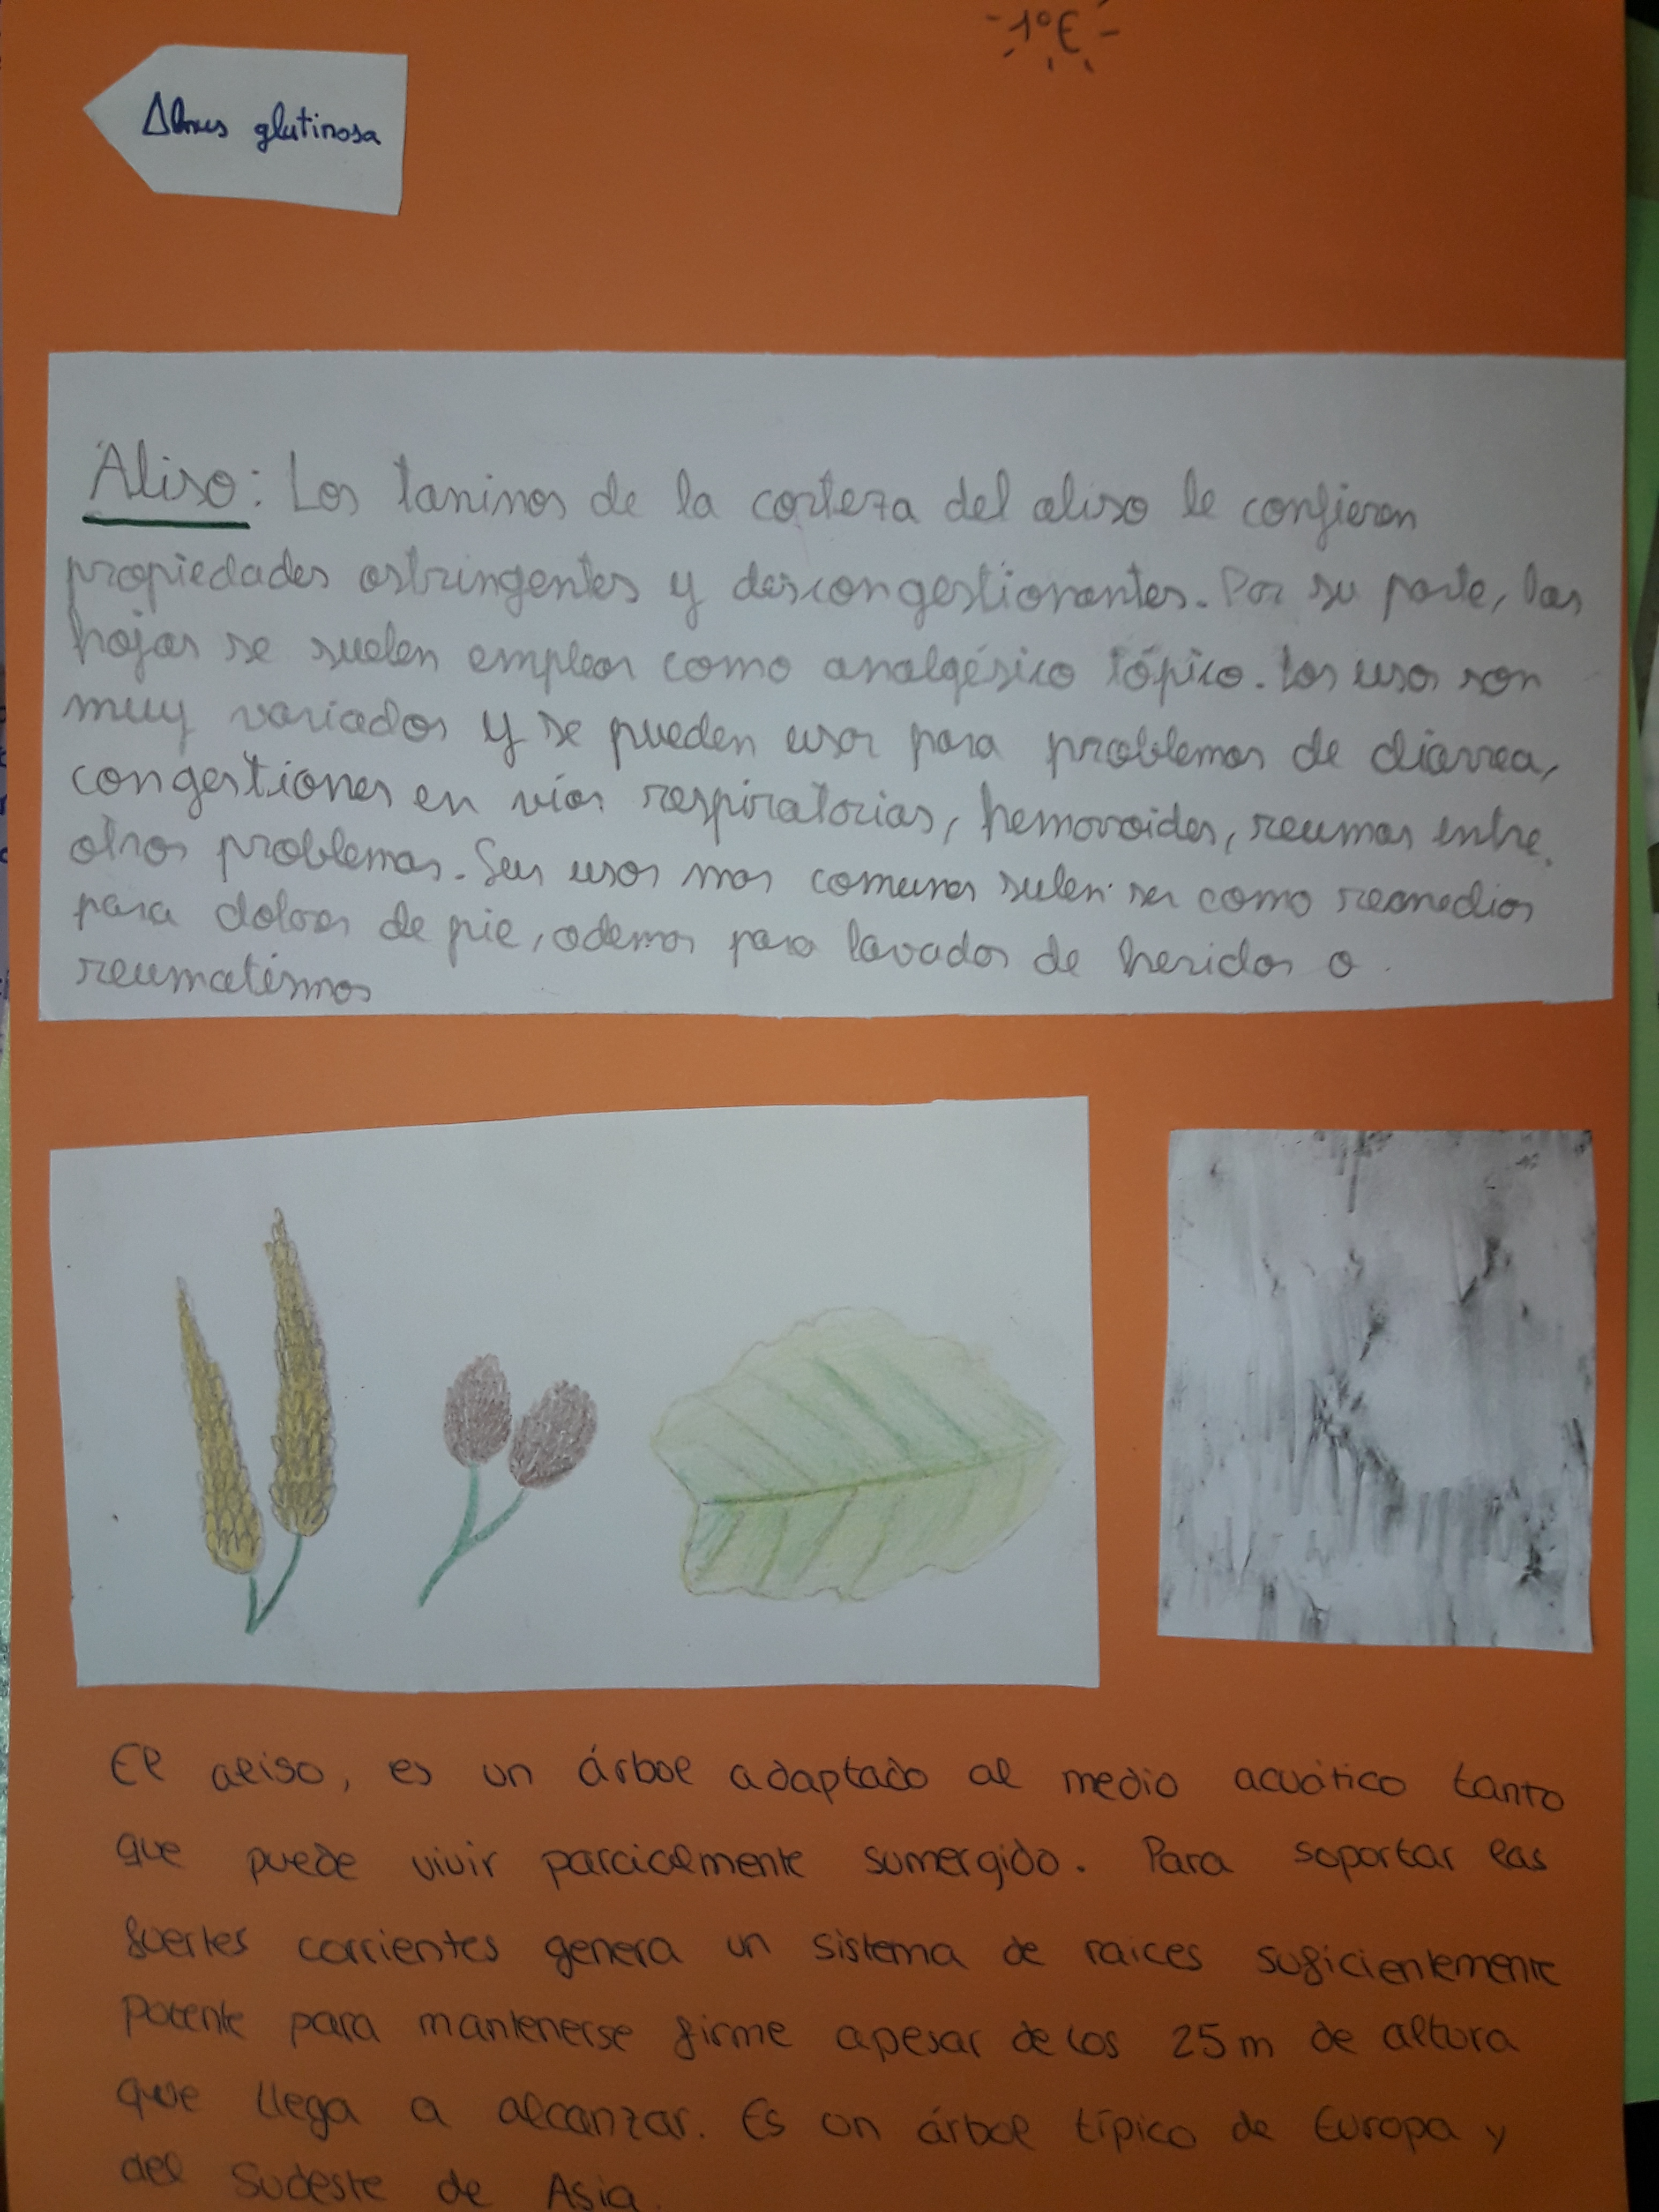 -1ºE-
Alnus glutinosa
Aliso: Los taninos de la corteza del aliso le confieren
propiedades astringentes y descongestionantes. Por su parte, las
hojas se suelen emplear como analgésico tópico. Los usos son
muy variados y se pueden usar para problemas de diarrea,
congestiones en vías respiratorias, hemorroides, reumas entre
otros problemas. Sus usos mas comunes sulen ser como remedios
para dolores de pie, ademas para lavados de heridas o
reumatismos
El aliso, es un árbol adaptado al medio acuático tanto
que puede vivir parcialmente sumergido. Para soportar las
fuertes corrientes genera un sistema de raices suficientemente
potente para mantenerse firme apesar de los 25 m de altura
que llega a alcanzar. Es un árbol típico de Europa y
del Sudeste de Asia.